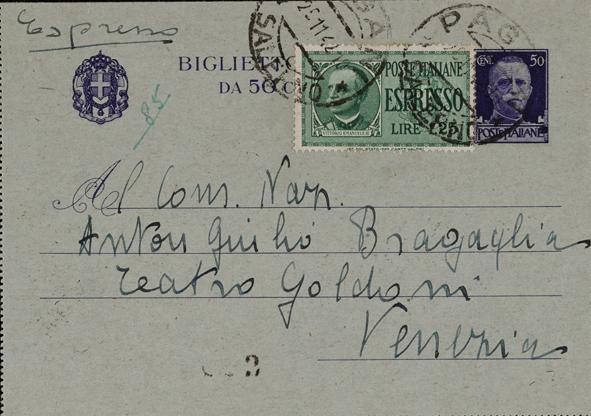 Espresso
BIGLIETTO
DA 50 C
85
POSTE ITALIANE
ESPRESSO
LIRE 1,25
VITTORIO EMANUELE III
CENT. 50
POSTE ITALIANE
PAG
25.11.42
Al Com. Naz.
Anton Giulio Bragaglia
Teatro Goldoni
Venezia